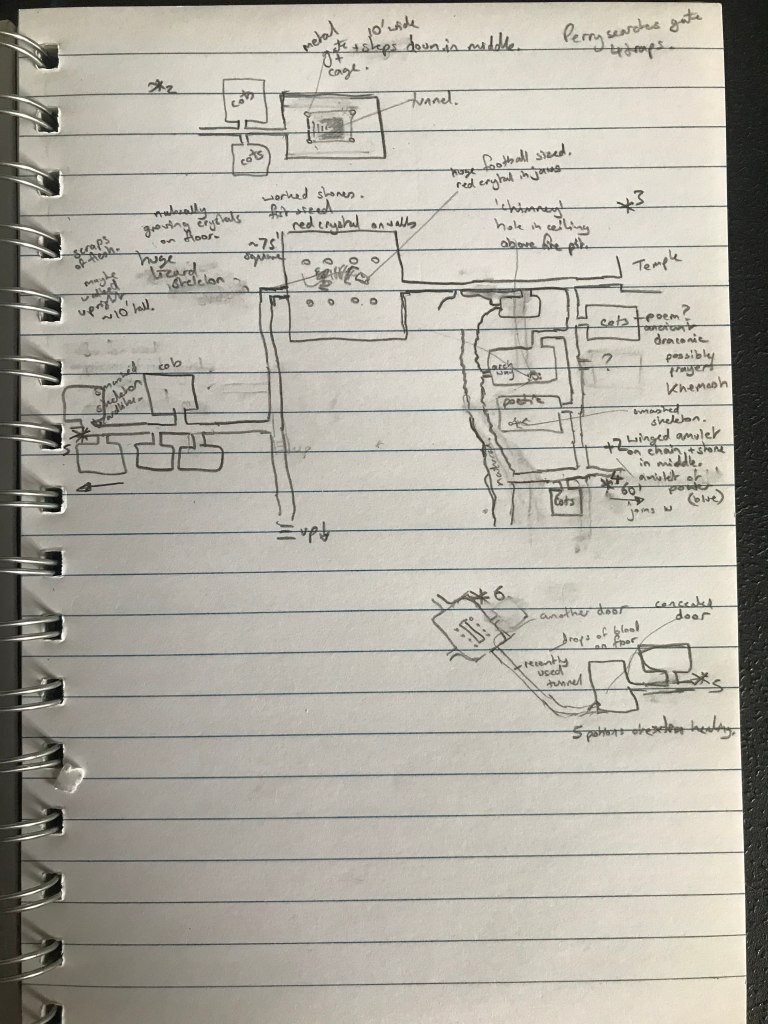 metal 10' wide
gate + steps down in middle.
+
cage.
Perry searches gate
4 traps.
*2
cots
tunnel.
cots
huge football sized.
red crystal in jaws
*3
worked stones.
fist sized
red crystal on walls
naturally
growing crystals
on floor.
~75'
square
'chimney'
hole in ceiling
above fire pit.
scraps
of flesh.
huge
lizard
skeleton
maybe
walked
upright
~10' tall.
Temple
cots
poem?
ancient
draconic
possibly
prayer
Khemosh
?
arch
way
smashed
skeleton
cob
smashed
skeleton.
+? Winged amulet
on chain, + stone
in middle.
amulet of
(blue)
*4
60'
joins w
cots
5
up
*6
another door
concealed
door
drops of blood
on floor
recently
used
tunnel
*5
5 potions of extra healing.